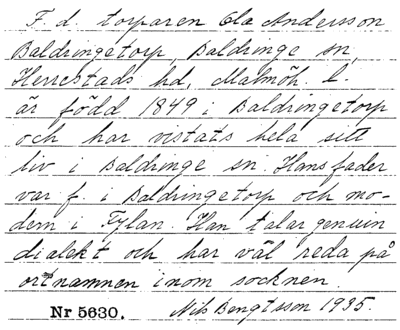 F. d. torparen Ola Andersson
Baldringetorp Baldringe sn,
Herrestads hd, Malmöh. l.
är född 1849 i Baldringetorp
och har vistats hela sitt
liv i Baldringe sn. Hans fader
var f. i Baldringetorp och mo-
dern i Fylan. Han talar genuin
dialekt och har väl reda på
ortnamnen inom socknen.
Nr 5630. Nils Bengtsson 1935.